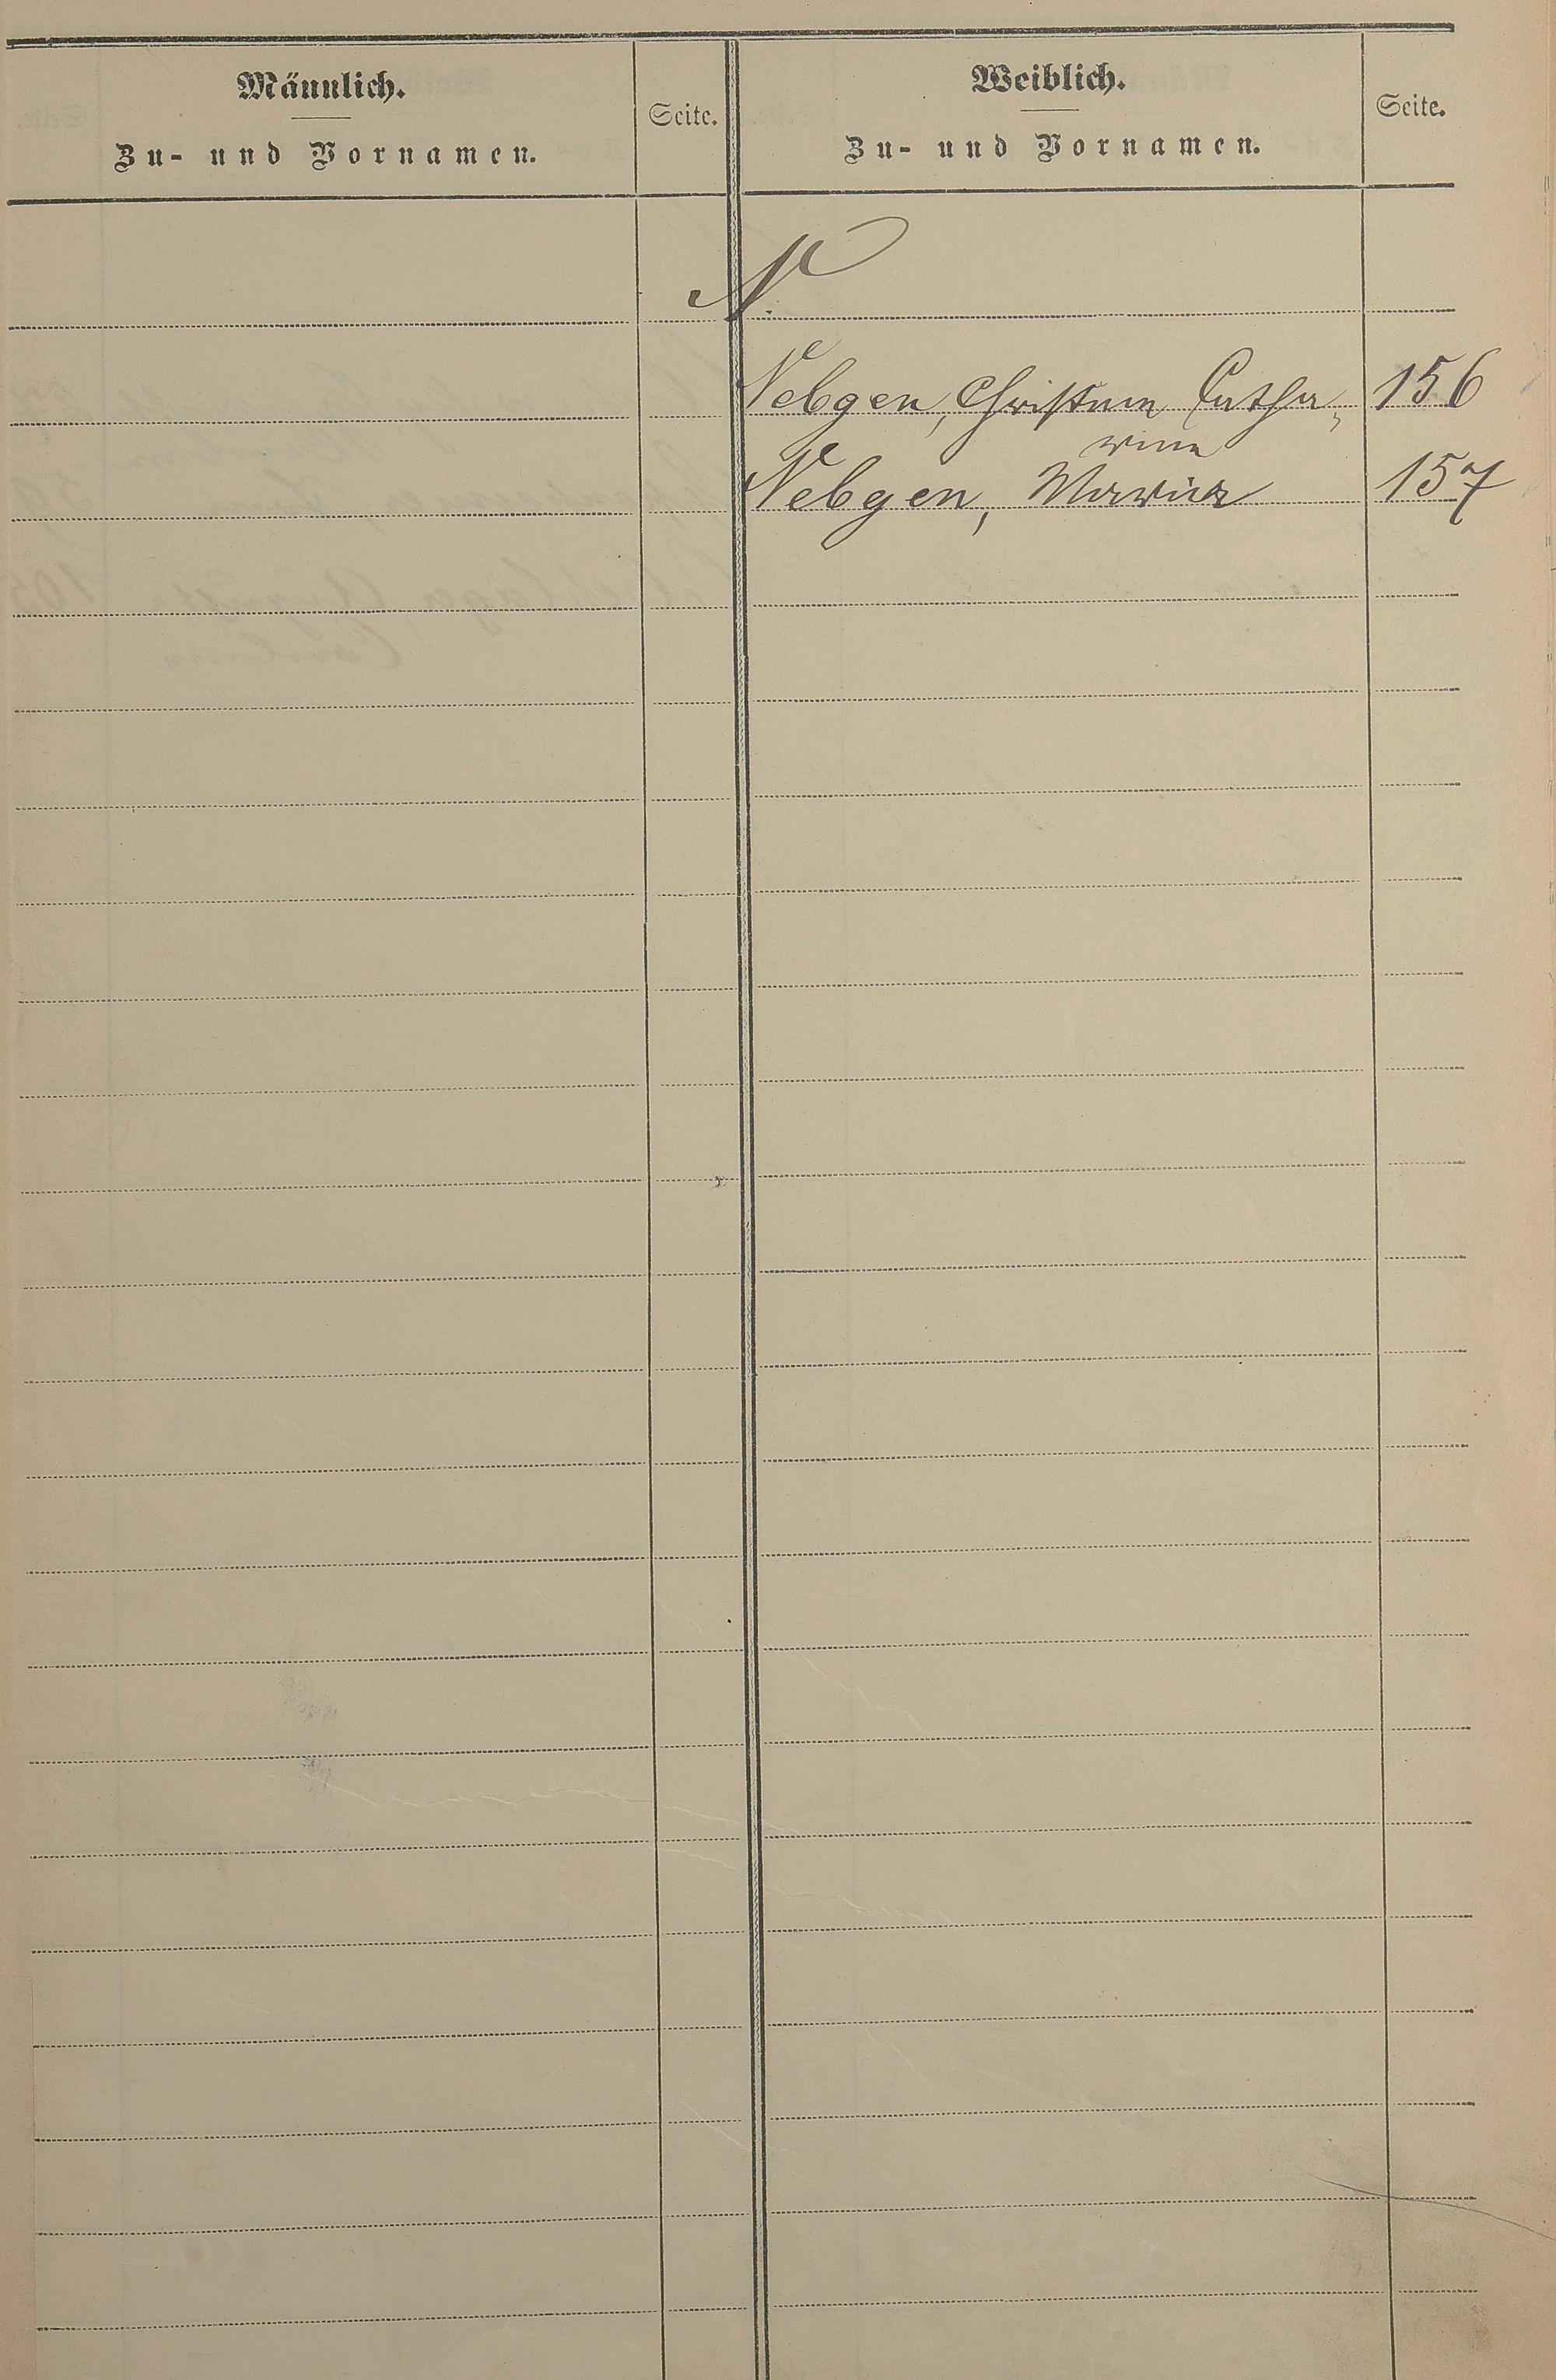 Männlich.
Zu- und Vornamen.
Seite.
Weiblich.
Zu- und Vornamen.
Seite.
N.
Nebgen, Christina Catha- 156
rina
Nebgen, Maria 157